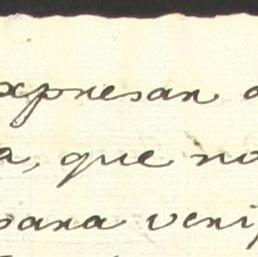 xpresan
a, que no
para veri